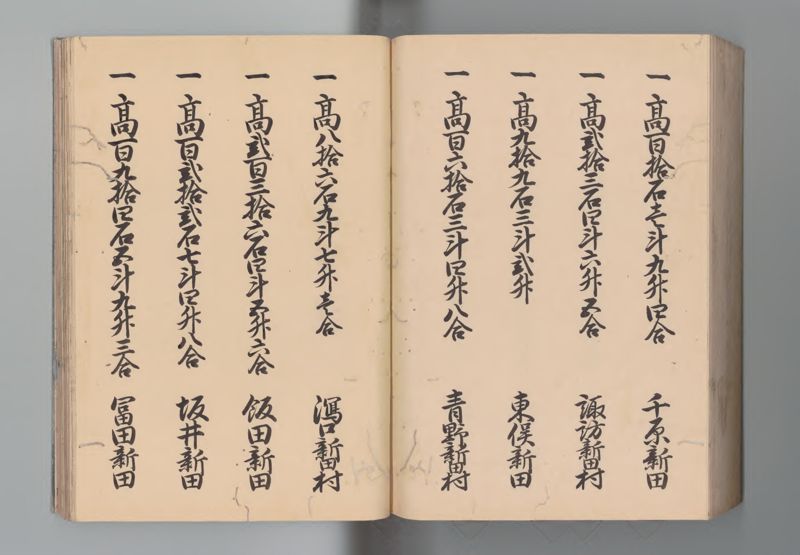 一 高百拾石壱斗九升四合 千原新田
一 高弐拾三石四斗六升五合 諏訪新田村
一 高九拾九石三斗弐升 東俣新田
一 高百六拾石三斗四升八合 青野新田村
一 高八拾六石九斗七升壱合 潟口新田村
一 高弐百三拾六石四斗五升六合 飯田新田
一 高百弐拾弐石七斗四升八合 坂井新田
一 高百九拾四石五斗九升三合 冨田新田